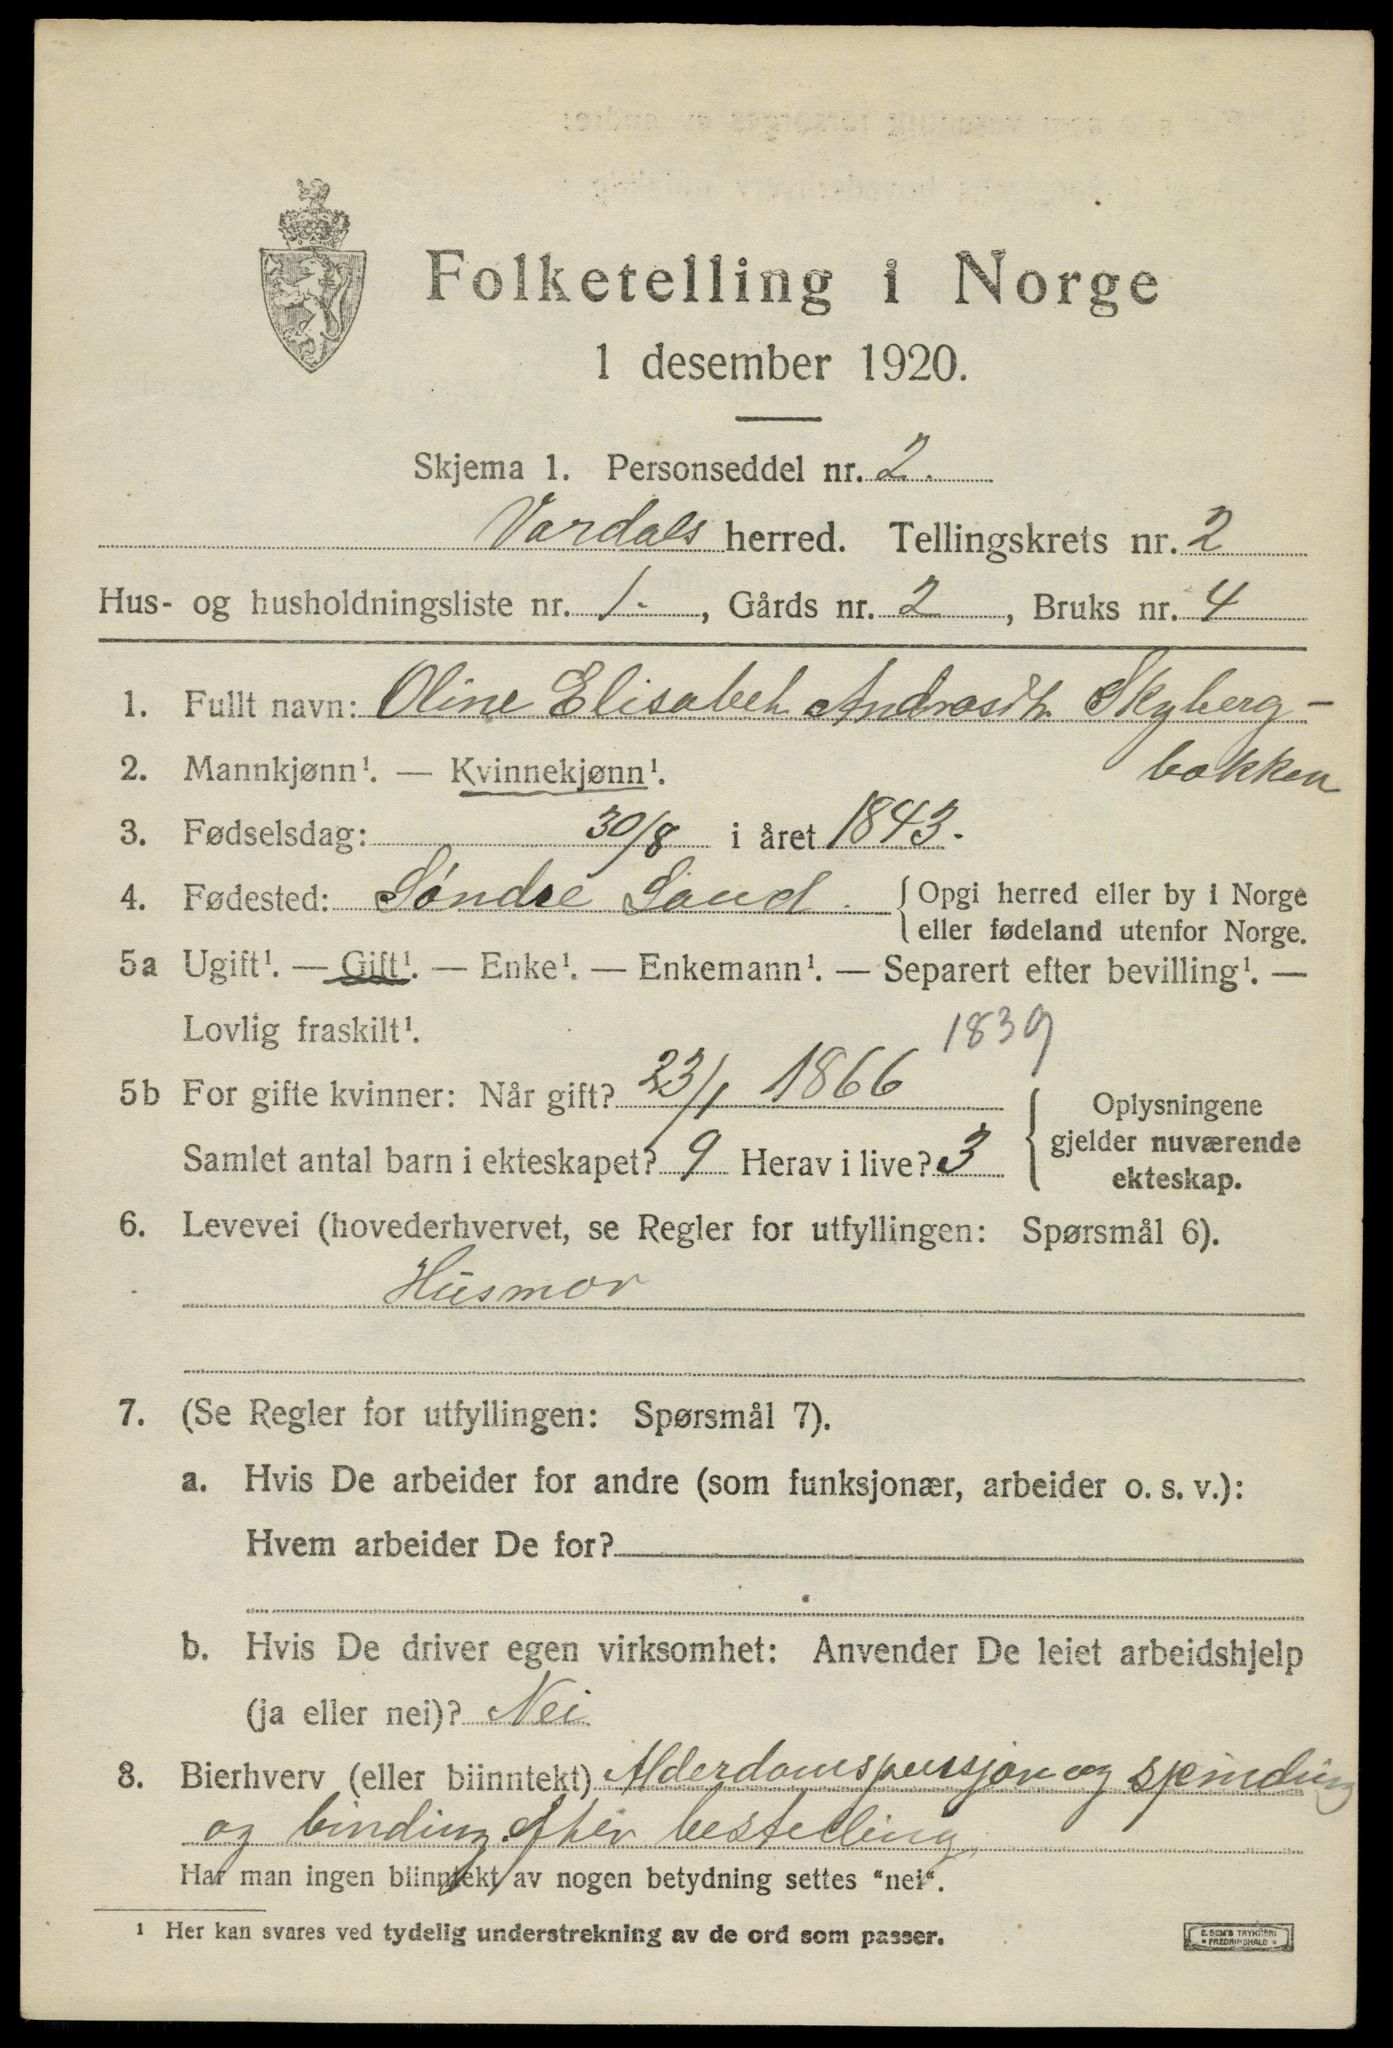 Folketelling i Norge
1 desember 1920.
Skjema 1. Personseddel nr. 2.
Vardals herred. Tellingskrets nr. 2
Hus- og husholdningsliste nr. 1. , Gårds nr. 2 , Bruks nr. 4
1. Fullt navn: Oline Elisabeth Skyberg-
bakken
2. Mannkjønn¹. — Kvinnekjønn¹.
3. Fødselsdag: 30/8 i året 1843.
4. Fødested: Søndre Land. { Opgi herred eller by i Norge
eller fødeland utenfor Norge.
5a Ugift¹. — Gift¹. — Enke¹. — Enkemann¹. — Separert efter bevilling¹. —
Lovlig fraskilt¹.
1839
5b For gifte kvinner: Når gift? 23/1 1866
Samlet antal barn i ekteskapet? 9 Herav i live? 3
Oplysningene
gjelder nuværende
ekteskap.
6. Levevei (hovederhvervet, se Regler for utfyllingen: Spørsmål 6).
Husmor
7. (Se Regler for utfyllingen: Spørsmål 7).
a. Hvis De arbeider for andre (som funksjonær, arbeider o. s. v.):
Hvem arbeider De for?
b. Hvis De driver egen virksomhet: Anvender De leiet arbeidshjelp
(ja eller nei)? Nei
8. Bierhverv (eller biinntekt) Alderdomspensjon og spinding
og binding efter bestelling,
Har man ingen biinntekt av nogen betydning settes "nei".
¹ Her kan svares ved tydelig understrekning av de ord som passer.
E. SEM'S TRYKKERI
FREDRIKSHALD